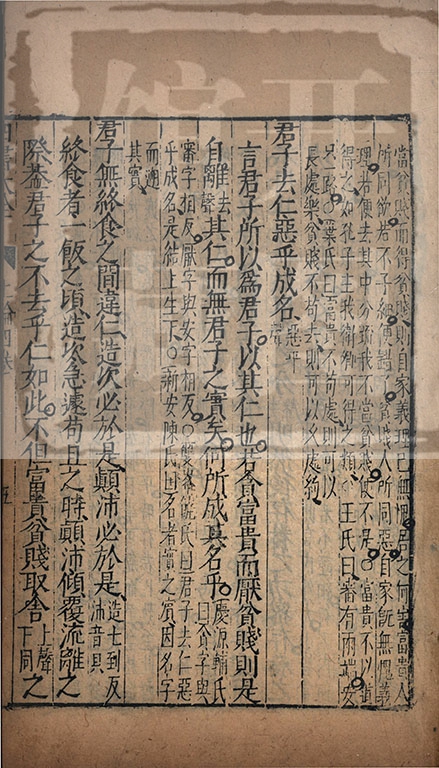 當貧賤而得貧賤則自家義理已無愧君之何害富貴人
所同欲若不子細便錯了貧賤人所同惡自家既無愧義
理若便去其中分䟽我不當貧賤便不是○富貴不以道
得之如孔子主我衛卿可得之類○王氏曰審有兩端安
只一路○葉氏曰富貴不苟處則可以
長處樂貧賤不苟去則可以久處約
君子去仁惡乎成名惡平聲
言君子所以爲君子以其仁也若貪富貴而厭貧賤則是
自離去聲其仁而無君子之實矣何所成其名乎慶源輔氏曰貪字與
審字相反厭字與安字相反○雙峯饒氏曰君子去仁惡
乎成名是結上生下○新安陳氏曰名者實之賔因名字
而遡
其實
君子無終食之間違仁造次必於是顛沛必於是造七到反沛音貝
終食者一飯之頃造次急遽苟且之時顛沛傾覆流離之
際蓋君子之不去乎仁如此不但富貴貧賤取舍上聲下同之
五